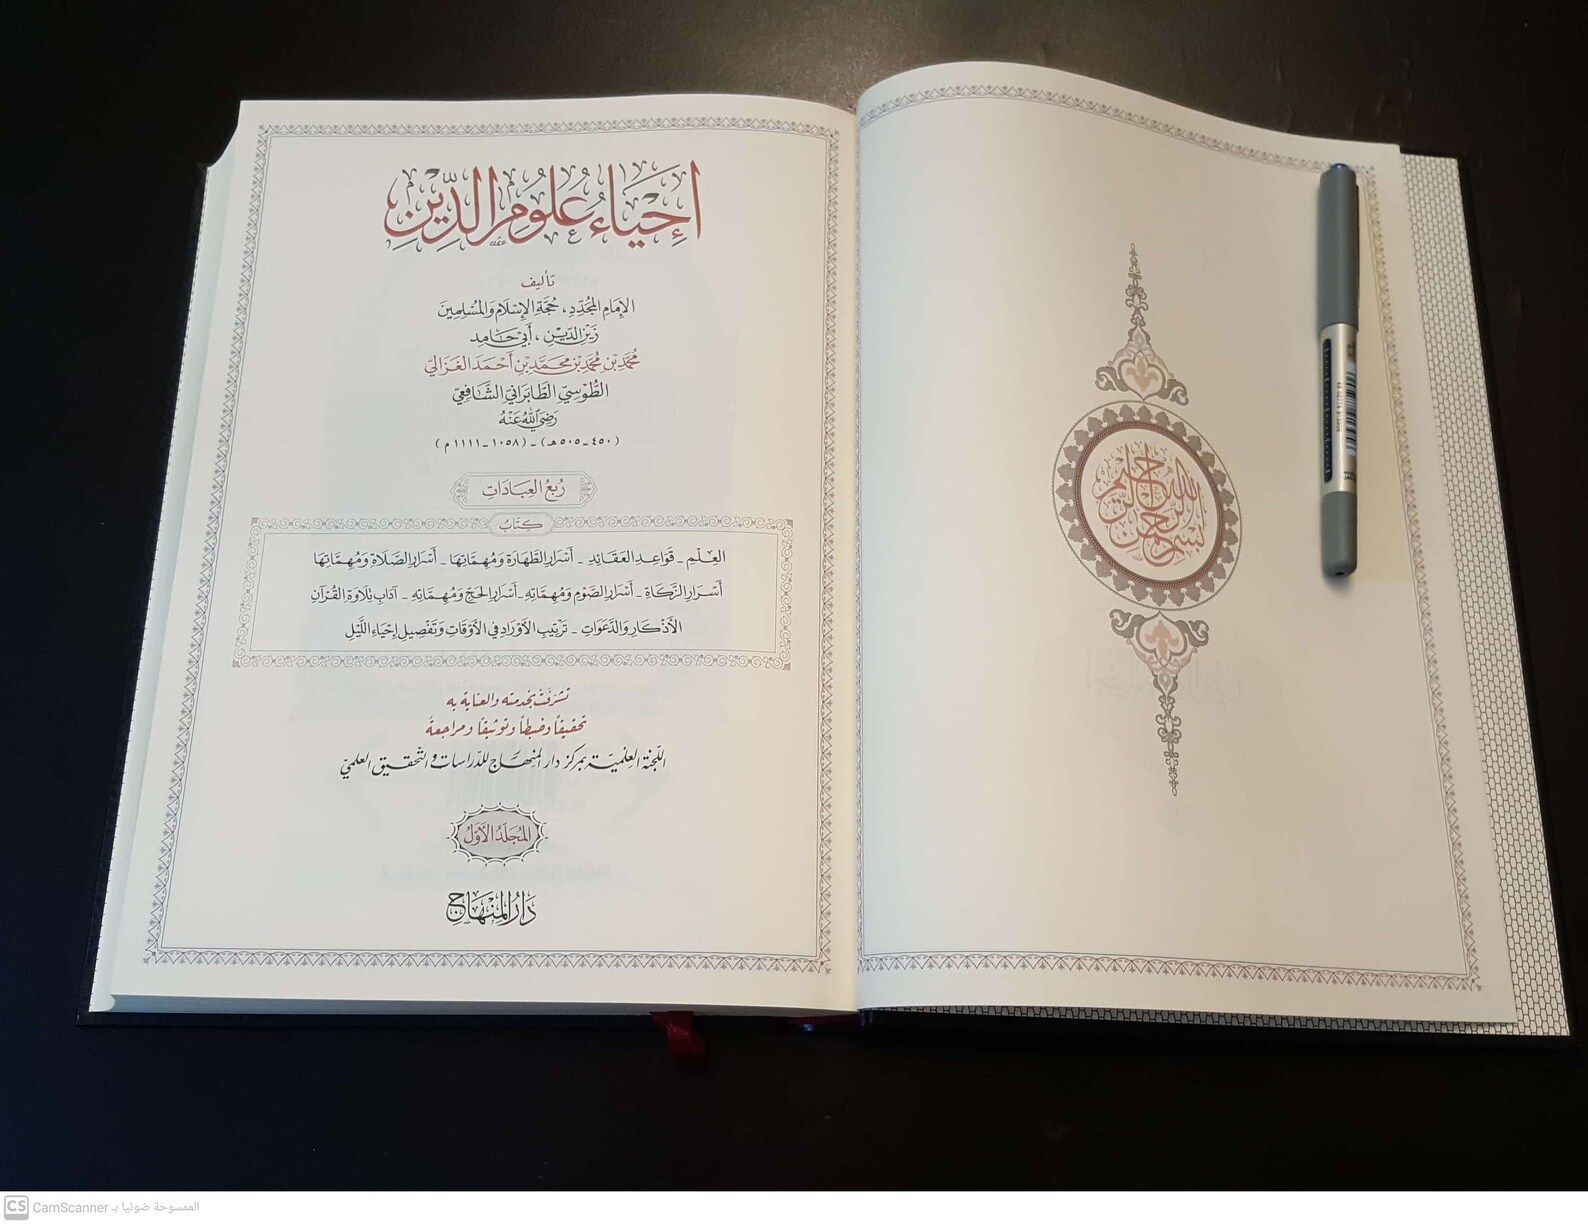 بسم الله الرحمن الرحيم
إِحْيَاءُ عُلُومِ الدِّينِ
تأليف
الإِمَامِ المُجَدِّدِ، حُجَّةِ الإِسْلَامِ وَالمُسْلِمِينَ
زَيْنِ الدِّينِ، أَبِي حَامِدٍ
مُحَمَّدِ بْنِ مُحَمَّدِ بْنِ مُحَمَّدِ بْنِ أَحْمَدَ الغَزَالِيِّ
الطُّوسِيِّ الطَّابَرَانِيِّ الشَّافِعِيِّ
رَضِيَ اللهُ عَنْهُ
(٤٥٠ - ٥٠٥ هـ) - (١٠٥٨ - ١١١١ م)
رُبْعُ العِبَادَاتِ
كِتَابُ
العِلْمِ - قَوَاعِدِ العَقَائِدِ - أَسْرَارِ الطَّهَارَةِ وَمُهِمَّاتِهَا - أَسْرَارِ الصَّلَاةِ وَمُهِمَّاتِهَا
أَسْرَارِ الزَّكَاةِ - أَسْرَارِ الصَّوْمِ وَمُهِمَّاتِهِ - أَسْرَارِ الحَجِّ وَمُهِمَّاتِهِ - آدَابِ تِلَاوَةِ القُرْآنِ
الأَذْكَارِ وَالدَّعَوَاتِ - تَرْتِيبِ الأَوْرَادِ فِي الأَوْقَاتِ وَتَفْصِيلِ إِحْيَاءِ اللَّيْلِ
تشرفت بخدمته والعناية به
تحقيقاً وضبطاً وتوثيقاً ومراجعةً
اللجنة العلمية بمركز دار المنهاج للدراسات والتحقيق العلمي
المُجَلَّدُ الأَوَّلُ
دَارُ المِنْهَاجِ
CS CamScanner الممسوحة ضوئيا بـ